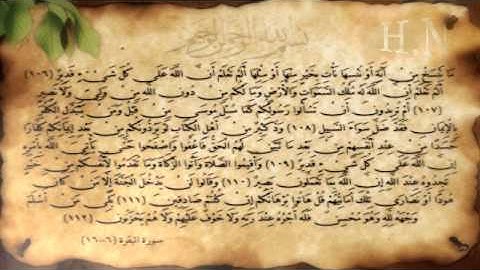 بسم الله الرحمن الرحيم
H.M
مَا نَنْسَخْ مِنْ آيَةٍ أَوْ نُنْسِهَا نَأْتِ بِخَيْرٍ مِنْهَا أَوْ مِثْلِهَا أَلَمْ تَعْلَمْ أَنَّ اللَّهَ عَلَى كُلِّ شَيْءٍ قَدِيرٌ (١٠٦)
أَلَمْ تَعْلَمْ أَنَّ اللَّهَ لَهُ مُلْكُ السَّمَوَاتِ وَالْأَرْضِ وَمَا لَكُمْ مِنْ دُونِ اللَّهِ مِنْ وَلِيٍّ وَلَا نَصِيرٍ
(١٠٧) أَمْ تُرِيدُونَ أَنْ تَسْأَلُوا رَسُولَكُمْ كَمَا سُئِلَ مُوسَى مِنْ قَبْلُ وَمَنْ يَتَبَدَّلِ الْكُفْرَ
بِالْإِيمَانِ فَقَدْ ضَلَّ سَوَاءَ السَّبِيلِ (١٠٨) وَدَّ كَثِيرٌ مِنْ أَهْلِ الْكِتَابِ لَوْ يَرُدُّونَكُمْ مِنْ بَعْدِ إِيمَانِكُمْ كُفَّارًا
حَسَدًا مِنْ عِنْدِ أَنْفُسِهِمْ مِنْ بَعْدِ مَا تَبَيَّنَ لَهُمُ الْحَقُّ فَاعْفُوا وَاصْفَحُوا حَتَّى يَأْتِيَ اللَّهُ بِأَمْرِهِ
إِنَّ اللَّهَ عَلَى كُلِّ شَيْءٍ قَدِيرٌ (١٠٩) وَأَقِيمُوا الصَّلَاةَ وَآتُوا الزَّكَاةَ وَمَا تُقَدِّمُوا لِأَنْفُسِكُمْ مِنْ خَيْرٍ
تَجِدُوهُ عِنْدَ اللَّهِ إِنَّ اللَّهَ بِمَا تَعْمَلُونَ بَصِيرٌ (١١٠) وَقَالُوا لَنْ يَدْخُلَ الْجَنَّةَ إِلَّا مَنْ كَانَ
هُودًا أَوْ نَصَارَى تِلْكَ أَمَانِيُّهُمْ قُلْ هَاتُوا بُرْهَانَكُمْ إِنْ كُنْتُمْ صَادِقِينَ (١١١) بَلَى مَنْ أَسْلَمَ
وَجْهَهُ لِلَّهِ وَهُوَ مُحْسِنٌ فَلَهُ أَجْرُهُ عِنْدَ رَبِّهِ وَلَا خَوْفٌ عَلَيْهِمْ وَلَا هُمْ يَحْزَنُونَ (١١٢)
سورة البقرة